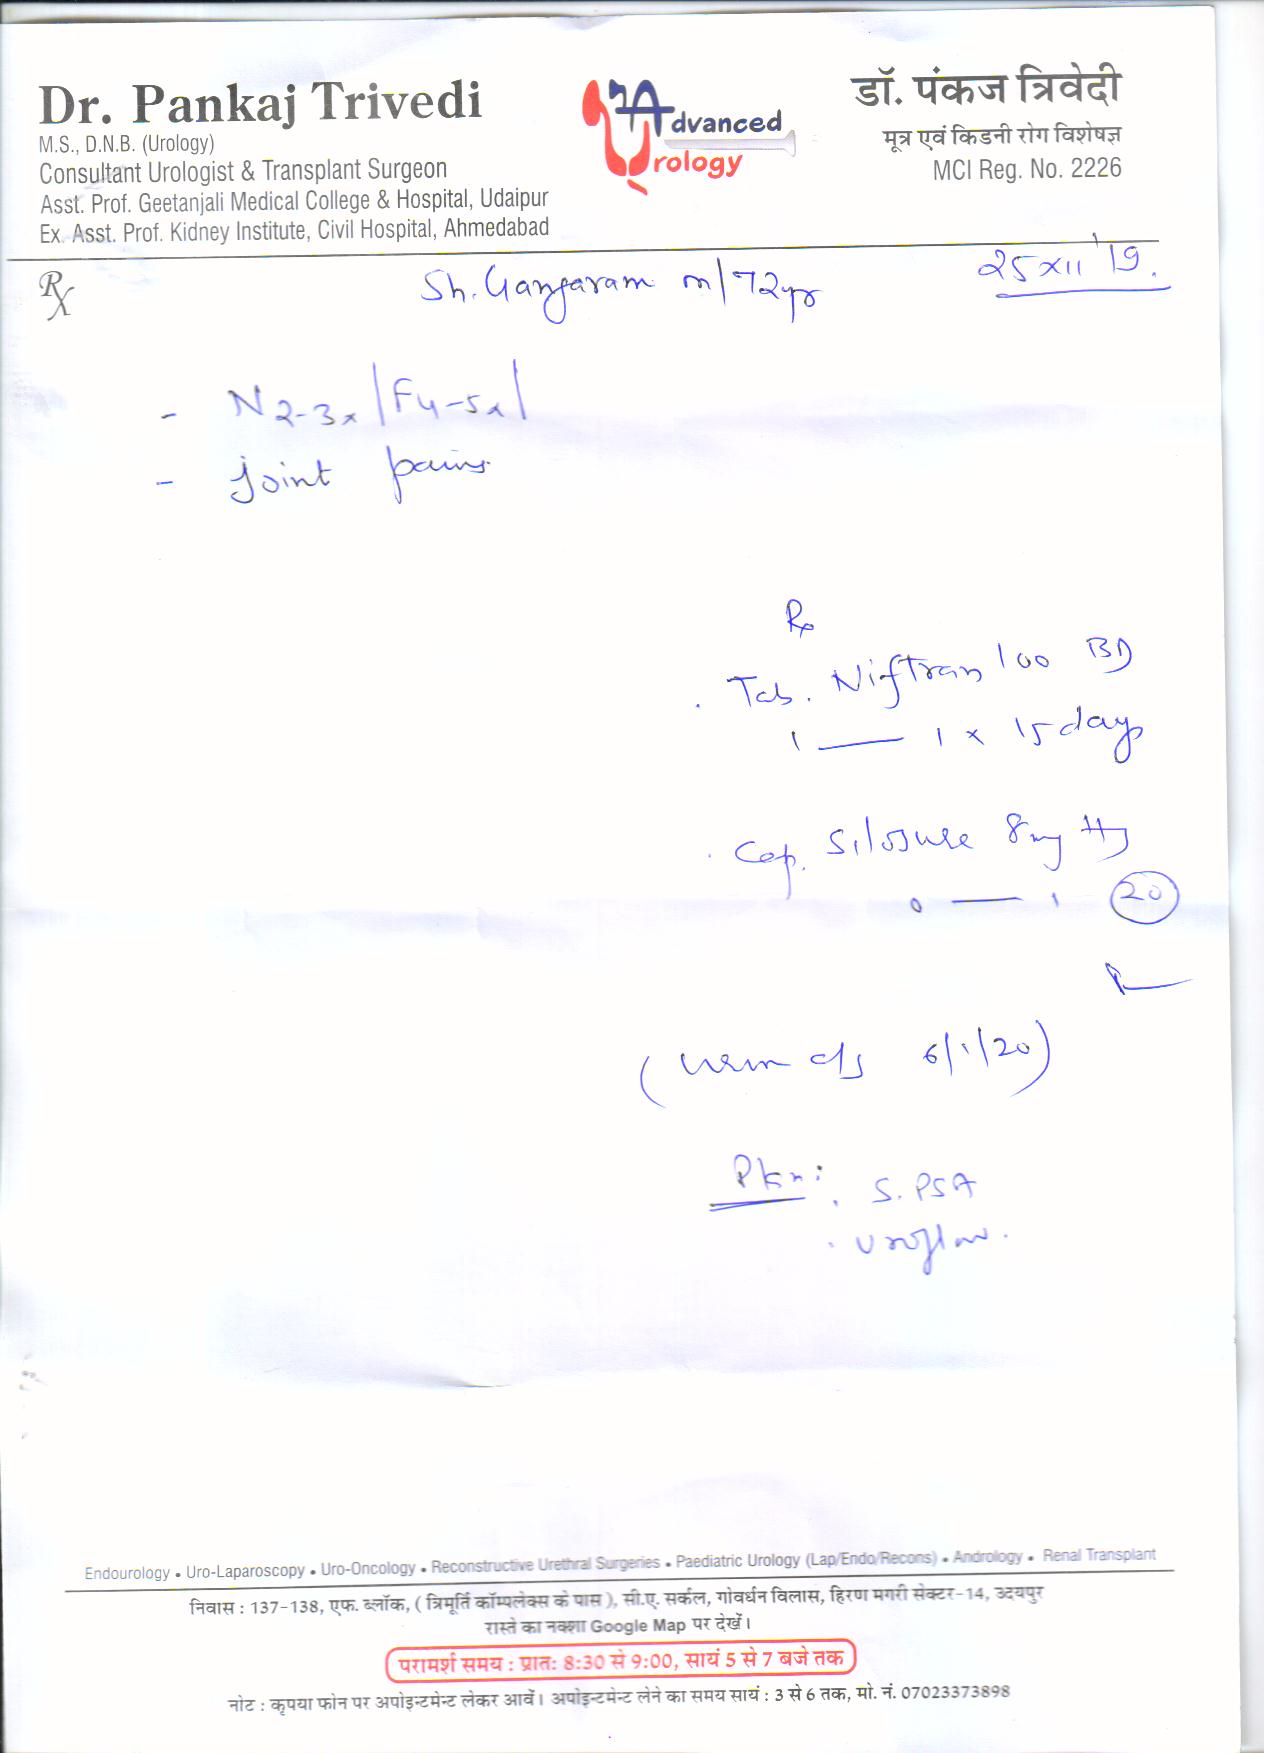 Dr. Pankaj Trivedi
M.S., D.N.B. (Urology)
Consultant Urologist & Transplant Surgeon
Asst. Prof. Geetanjali Medical College & Hospital, Udaipur
Ex. Asst. Prof. Kidney Institute, Civil Hospital, Ahmedabad
Advanced
Urology
डॉ. पंकज त्रिवेदी
मूत्र एवं किडनी रोग विशेषज्ञ
MCI Reg. No. 2226
Rx
Sh. Gangaram m/72yr
25 XII '19.
- N 2-3x | F 4-5x |
- Joint pains
Rx
. Tab. Niftran 100 BD
1 — 1 x 15 days
. Cap. Silosure 8mg
0 — 1 20
( c/s 6/1/20)
Plan: . S. PSA
. Uroflow.
Endourology • Uro-Laparoscopy • Uro-Oncology • Reconstructive Urethral Surgeries • Paediatric Urology (Lap/Endo/Recons) • Andrology • Renal Transplant
निवास : 137-138, एफ. ब्लॉक, ( त्रिमूर्ति कॉम्पलेक्स के पास ), सी.ए. सर्कल, गोवर्धन विलास, हिरण मगरी सेक्टर-14, उदयपुर
रास्ते का नक्शा Google Map पर देखें।
परामर्श समय : प्रातः 8:30 से 9:00, सायं 5 से 7 बजे तक
नोट : कृपया फोन पर अपोइन्टमेन्ट लेकर आवें। अपोइन्टमेन्ट लेने का समय सायं : 3 से 6 तक, मो. नं. 07023373898